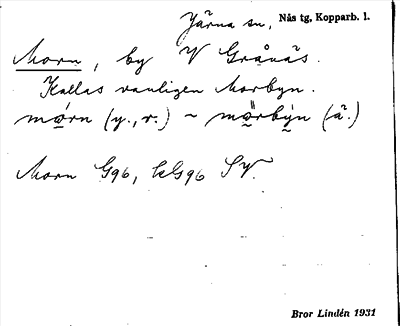 Järna sn, Nås tg, Kopparb. l.
Morn, by V Grånäs.
Kallas vanligen Morbyn.
mórn (y., r.) ~ mörbýn (ä.)
Morn G96, kG96 SV.
Bror Lindén 1931